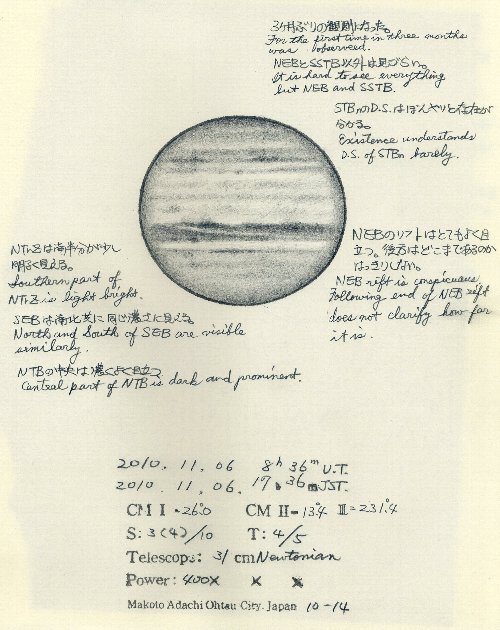 3ヶ月ぶりの観測となった。
For the first time in three months
was observed.
NEBとSSTB以外は見づらい。
It is hard to see everything
but NEB and SSTB.
STBnのD.S.はぼんやりと存在が
分かる。
Existence understands
D.S. of STBn barely.
NEBのリフトはとてもよく目
立つ。後方はどこまであるのか
はっきりしない。
NEB rift is conspicuous,
Following end of NEB rift
does not clarify how far
it is.
NTrZは南半分が少し
明るく見える。
Southern part of
NTrZ is light bright.
SEBは南北共に同じ濃さに見える。
North and South of SEB are visible
similarly.
NTBの中央は濃くよく目立つ
Centeal part of NTB is dark and prominent.
2010. 11. 06 8h 36m U.T.
2010. 11. 06. 17h 36m JST.
CM I = 26°.0 CM II = 13°.4 III = 231°.4
S: 3(4)/10 T: 4/5
Telescope: 31 cm Newtonian
Power: 400× × ×
Makoto Adachi Ohtsu City. Japan 10-14